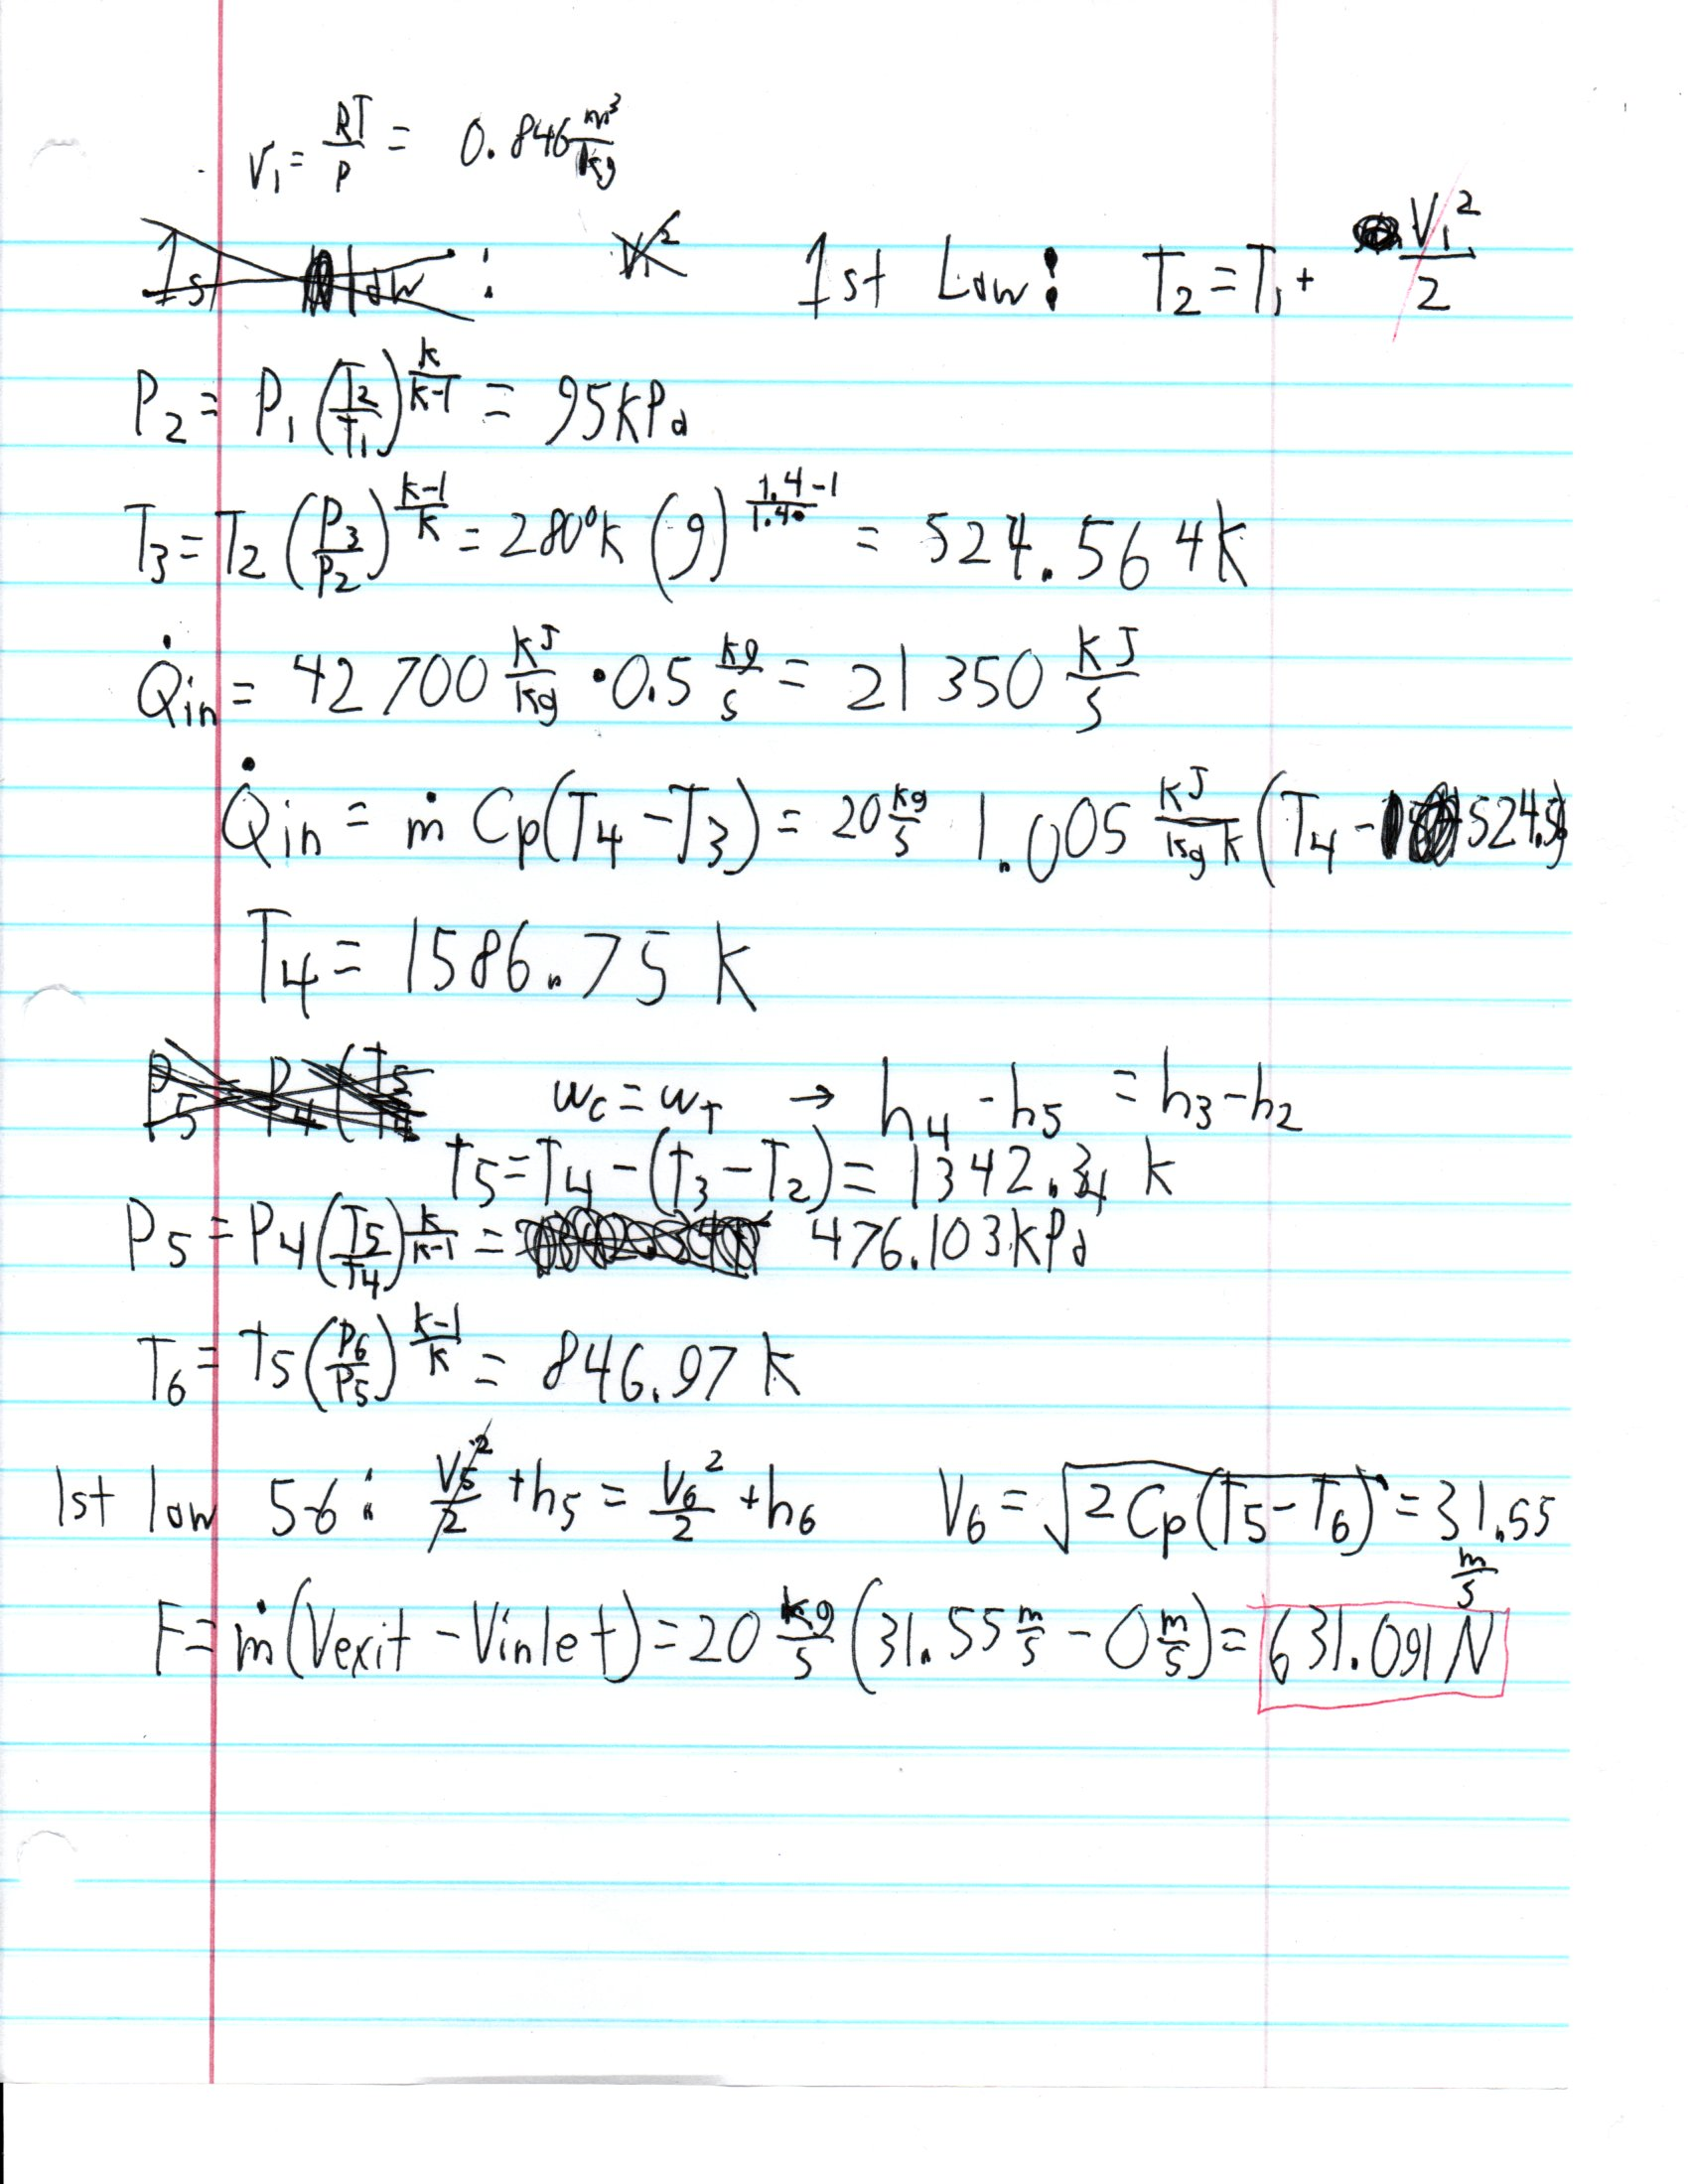 V₁ = RT/P = 0.846 m³/kg
1st law : V₁² 1st Law: T₂ = T₁ + V₁²/2
P₂ = P₁ (T₂/T₁)^(k/(k-1)) = 95 kPa
T₃ = T₂ (P₃/P₂)^((k-1)/k) = 280°K (9)^((1.4-1)/1.4) = 524.564 K
Q̇in = 42 700 kJ/kg · 0.5 kg/s = 21 350 kJ/s
Q̇in = ṁ Cp(T₄ - T₃) = 20 kg/s 1.005 kJ/kg K (T₄ - 524.56)
T₄ = 1586.75 K
P₅ = P₄ (T₅/T₄ wc = wT → h₄ - h₅ = h₃ - h₂
T₅ = T₄ - (T₃ - T₂) = 1342.34 K
P₅ = P₄ (T₅/T₄)^(k/(k-1)) = 476.103 kPa
T₆ = T₅ (P₆/P₅)^((k-1)/k) = 846.97 K
1st law 5-6: V₅²/2 + h₅ = V₆²/2 + h₆ V₆ = √(2 Cp(T₅ - T₆)) = 31.55 m/s
F = ṁ (Vexit - Vinlet) = 20 kg/s (31.55 m/s - 0 m/s) = 631.091 N